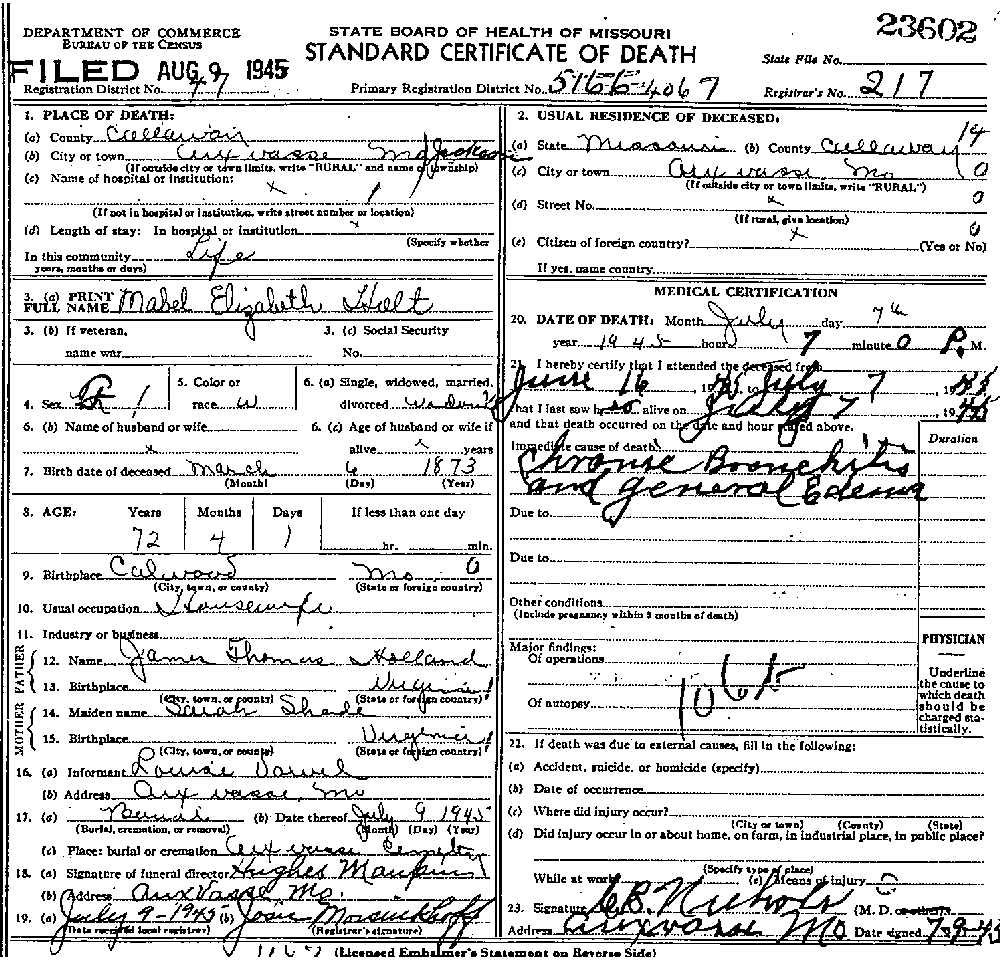 23602
DEPARTMENT OF COMMERCE
BUREAU OF THE CENSUS
STATE BOARD OF HEALTH OF MISSOURI
STANDARD CERTIFICATE OF DEATH
FILED AUG 9 1945
State File No.
Registration District No. 47
Primary Registration District No. 4067
Registrar's No. 217
1. PLACE OF DEATH:
(a) County Callaway
(b) City or town Auxvasse Mo Jackson
(If outside city or town limits, write "RURAL" and name of township)
(c) Name of hospital or institution:
x 1
(If not in hospital or institution, write street number or location)
(d) Length of stay: In hospital or institution x
(Specify whether
In this community Life
years, months or days)
3. (a) PRINT FULL NAME Mabel Elizabeth Holt
3. (b) If veteran,
name war
3. (c) Social Security
No.
4. Sex F 1
5. Color or
race W
6. (a) Single, widowed, married,
divorced Widow
6. (b) Name of husband or wife
x
6. (c) Age of husband or wife if
alive x years
7. Birth date of deceased March 6 1873
(Month) (Day) (Year)
8. AGE: Years Months Days If less than one day
72 4 1 hr. min.
9. Birthplace Calwood Mo 0
(City, town, or county) (State or foreign country)
10. Usual occupation Housewife
11. Industry or business
FATHER
12. Name James Thomas Holland
13. Birthplace Virginia 1
(City, town, or county) (State or foreign country)
MOTHER
14. Maiden name Sarah
15. Birthplace Virginia 1
(City, town, or county) (State or foreign country)
16. (a) Informant Louise
(b) Address Auxvasse, Mo
17. (a) Burial (b) Date thereof July 9 1945
(Burial, cremation, or removal) (Month) (Day) (Year)
(c) Place: burial or cremation Auxvasse Cemetery
18. (a) Signature of funeral director Hughes Maupin
(b) Address Auxvasse Mo.
19. (a) July 9-1945 (b) Josie
(Date received local registrar) (Registrar's signature)
2. USUAL RESIDENCE OF DECEASED:
14
(a) State Missouri (b) County Callaway
(c) City or town Auxvasse Mo 0
(If outside city or town limits, write "RURAL")
(d) Street No. x 0
(If rural, give location)
(e) Citizen of foreign country? x 0
(Yes or No)
If yes, name country
MEDICAL CERTIFICATION
20. DATE OF DEATH: Month July day 7th
year 1945 hour 7 minute 0 P. M.
21. I hereby certify that I attended the deceased from
June 16, 1945, to July 7, 1945
that I last saw h alive on July 7, 1945
and that death occurred on the date and hour stated above.
Duration
Immediate cause of death
Chronic Bronchitis
and general Edema
Due to
Due to
Other conditions
(Include pregnancy within 3 months of death)
Major findings:
Of operations
Of autopsy
PHYSICIAN
Underline
the cause to
which death
should be
charged sta-
tistically.
22. If death was due to external causes, fill in the following:
(a) Accident, suicide, or homicide (specify)
(b) Date of occurrence
(c) Where did injury occur?
(City or town) (County) (State)
(d) Did injury occur in or about home, on farm, in industrial place, in public place?
(Specify type of place)
While at work (e) Means of injury
23. Signature Nichols (M. D.
Address Auxvasse Mo Date signed 7-9-45
(Licensed Embalmer's Statement on Reverse Side)